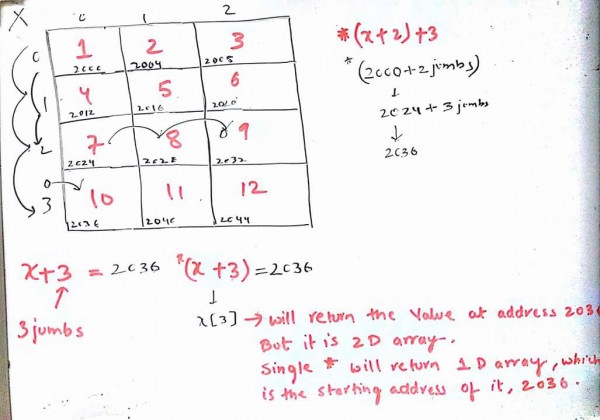 X 0 1 2
0 1 2 3
2000 2004 2008
1 4 5 6
2012 2016 2020
2 7 8 9
2024 2028 2032
0
3 10 11 12
2036 2040 2044
*(x+2)+3
*(2000+2jumbs)
2024+3jumbs
2036
x+3 = 2036 *(x+3)=2036
3jumbs
x[3] → will return the value at address 2036
But it is 2D array.
Single * will return 1D array, which
is the starting address of it, 2036.